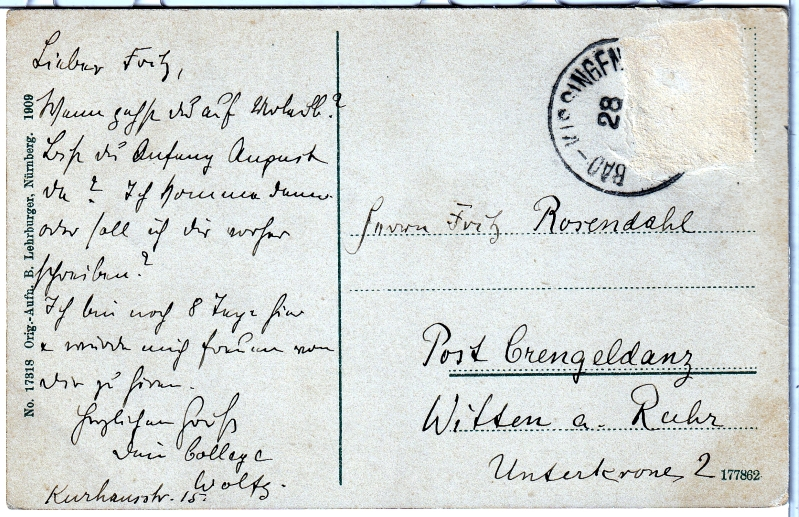 Lieber Fritz,
Wann gehst du auf Urlaub?
Bist du Anfang August
da? Ich komme dann
oder soll ich dir vorher
schreiben?
Ich bin noch 8 Tage hier
& würde mich freuen von
Dir zu hören.
Herzlichen Gruß
Dein College
Woltz.
Kurhausstr. 15.
No. 17318 Orig.-Aufn. B. Lehrburger, Nürnberg. 1909
BAD-KISSINGEN
28
Herrn Fritz Rosendahl
Post Crengeldanz
Witten a. Ruhr
Unterkrone 2
177862